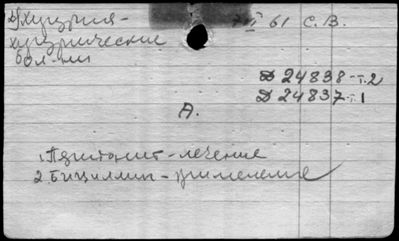 Хирургия-
хирургические
бол-ни
VII 61 С.В.
Д 24838-т.2
Д 24837-т.1
А.
1. Перитонит-лечение
2. Бициллин-применение